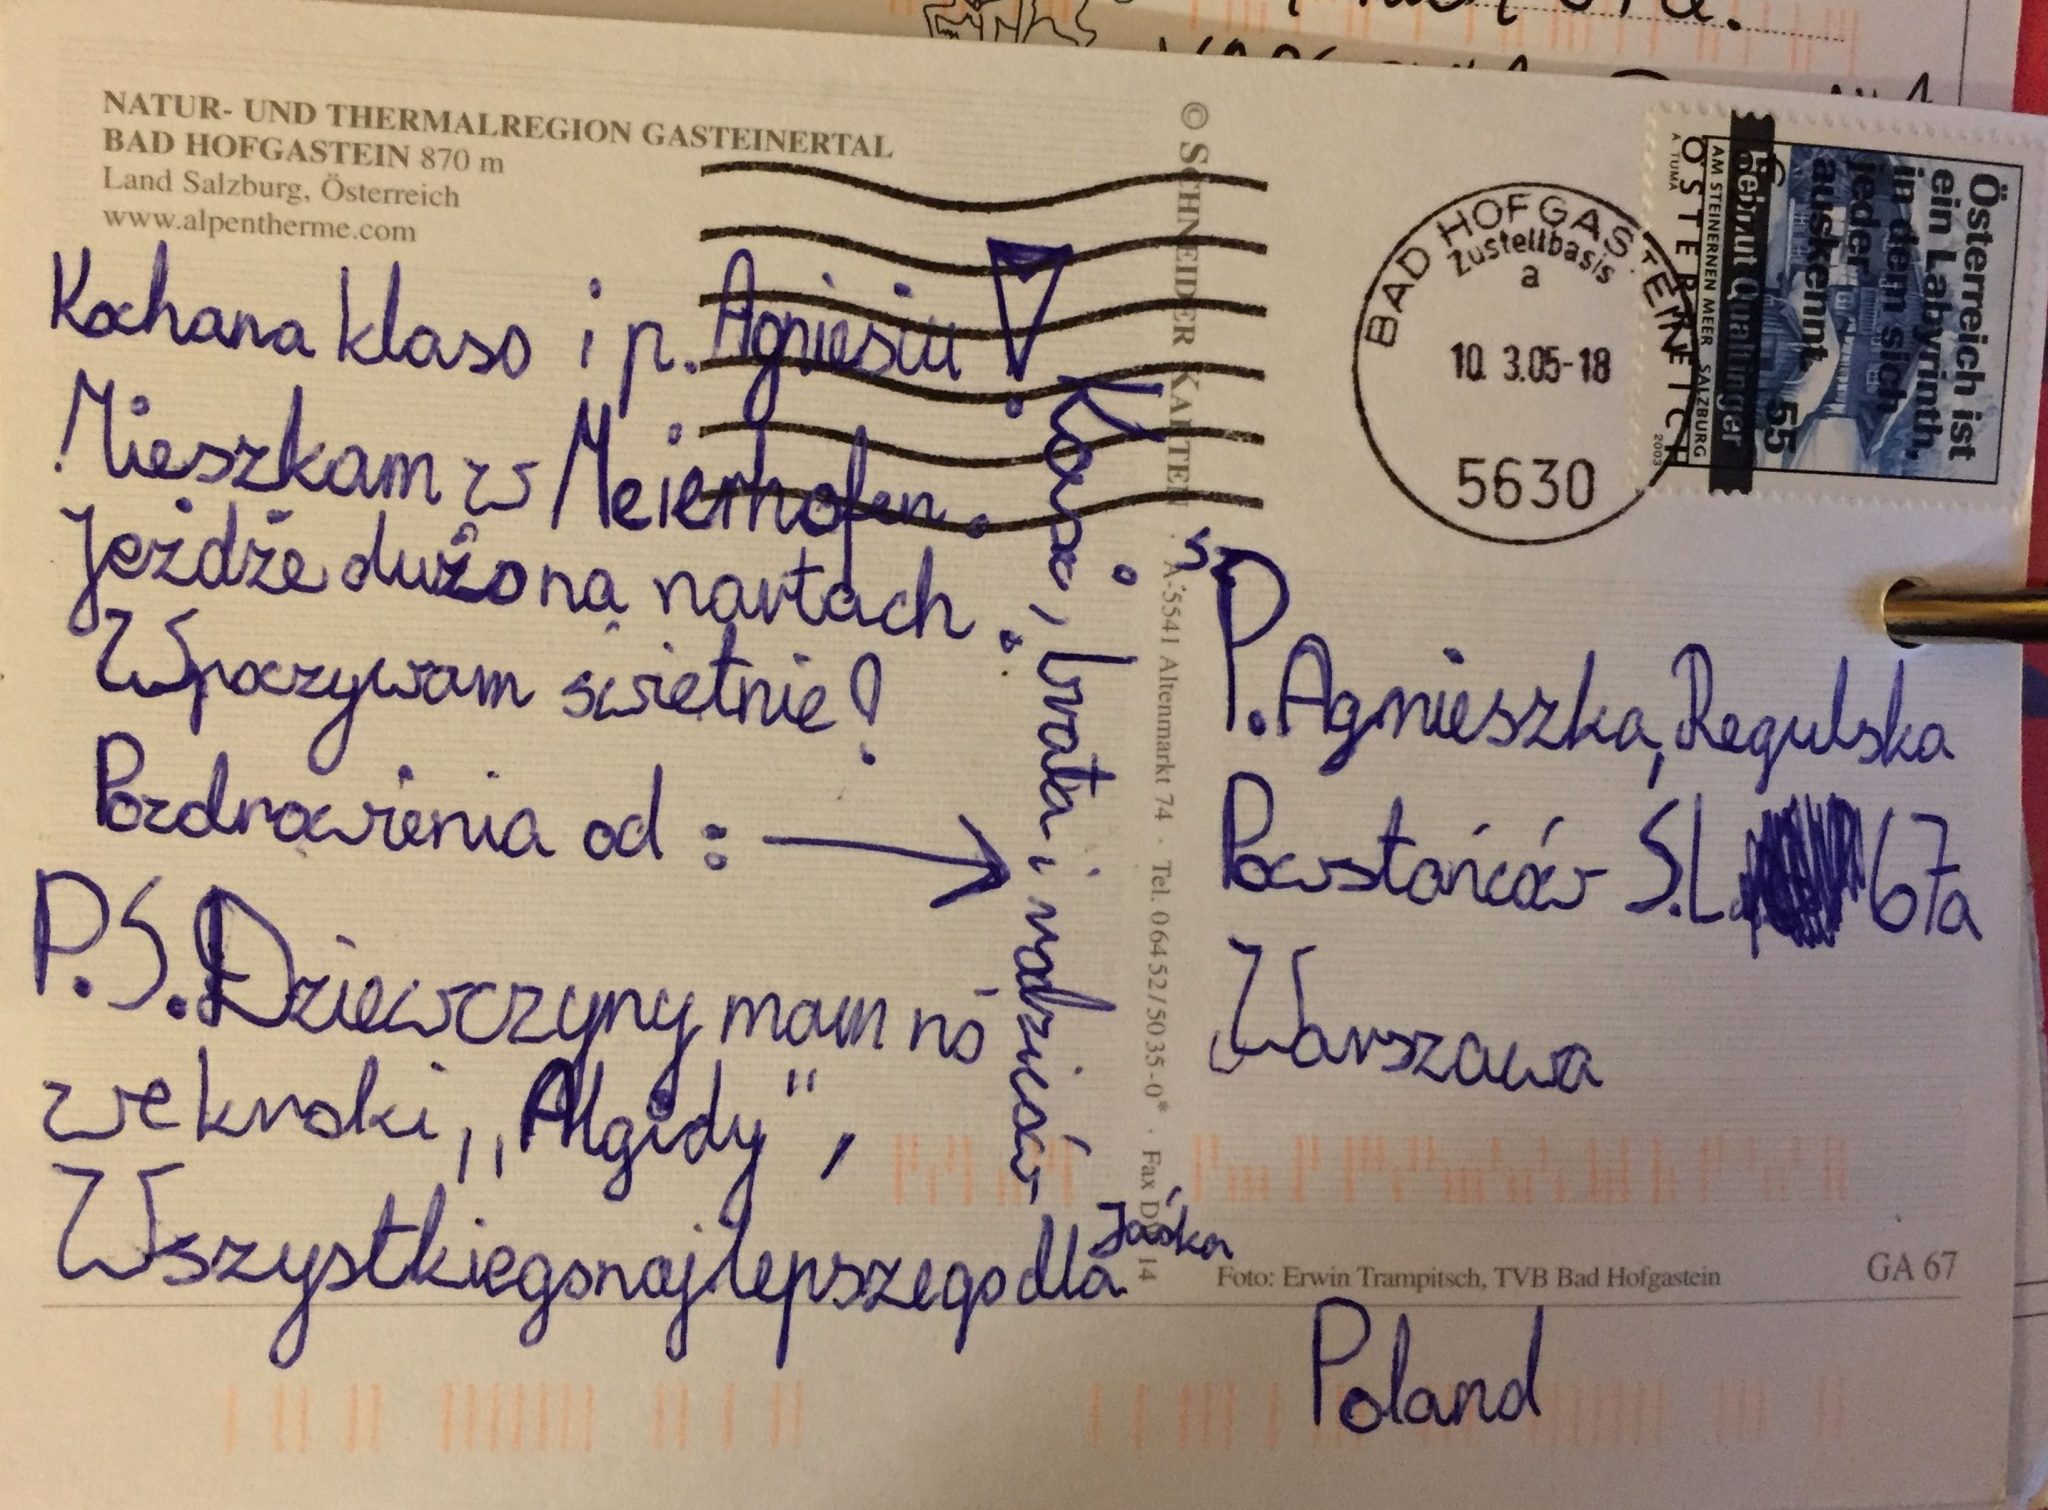 NATUR- UND THERMALREGION GASTEINERTAL
BAD HOFGASTEIN 870 m
Land Salzburg, Österreich
www.alpentherme.com
Kochana klaso i p. Agniesiu!
Mieszkam w Meierhofen.
Jeżdżę dużo na nartach.
Wpoczywam świetnie!
Pozdrowienia od:
brata i rodziców
P.S. Dziewczyny mam no
we knoski, „Algidy",
Wszystkiego najlepszego dla Jaśka
© SCHNEIDER KARTEN · A-5541 Altenmarkt 74 · Tel. 06452/5035-0* · Fax 14
BAD HOFGASTEIN
Zustellbasis
a
10. 3.05-18
5630
Österreich ist
ein Labyrinth,
in dem sich
jeder
auskennt.
Helmut Qualtinger
€ 55
AM STEINERNEN MEER SALZBURG
ÖSTERREICH
A TUMA
2003
Sz
P. Agnieszka, Regulska
Powstańców S.L. 67a
Warszawa
Foto: Erwin Trampitsch, TVB Bad Hofgastein
GA 67
Poland